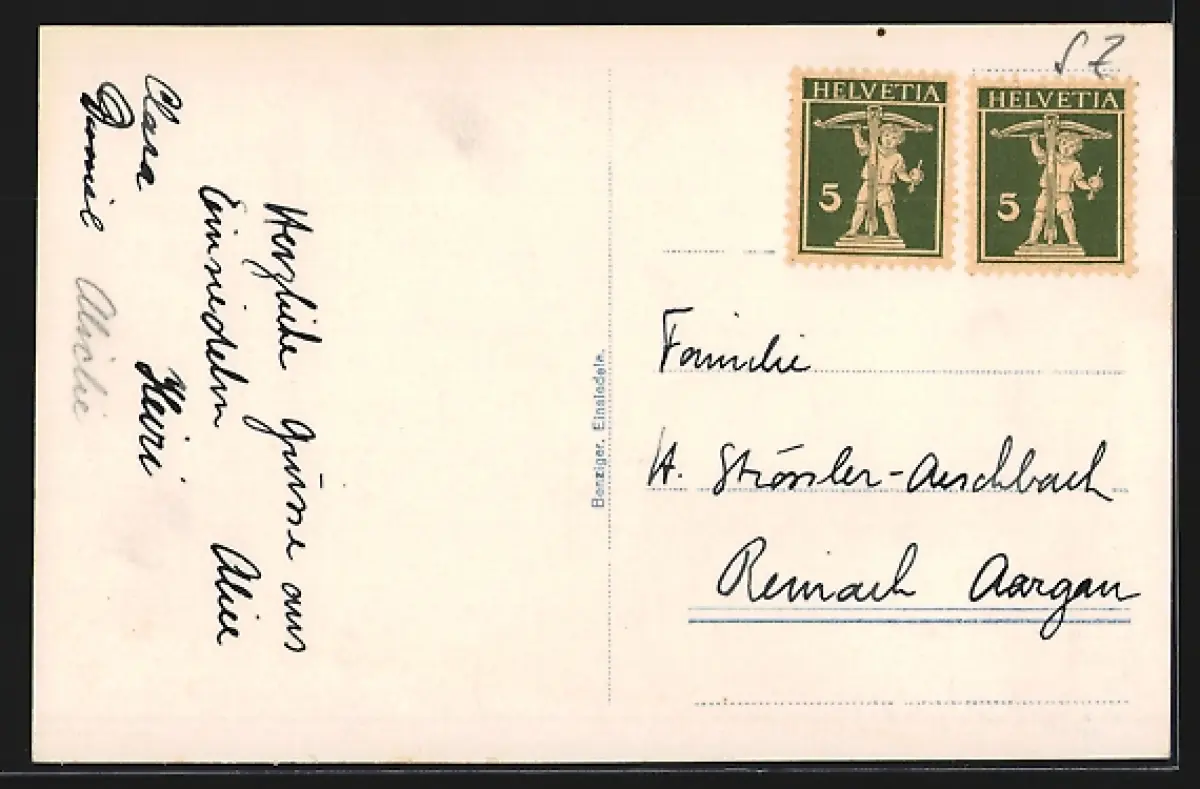 Herzliche Grüsse aus
Einsiedeln Alice
Clara Heiri
Alicelie
Benziger, Einsiedeln.
S Z
HELVETIA
5
HELVETIA
5
Familie
H. Strössler-Aeschbach
Reinach Aargau